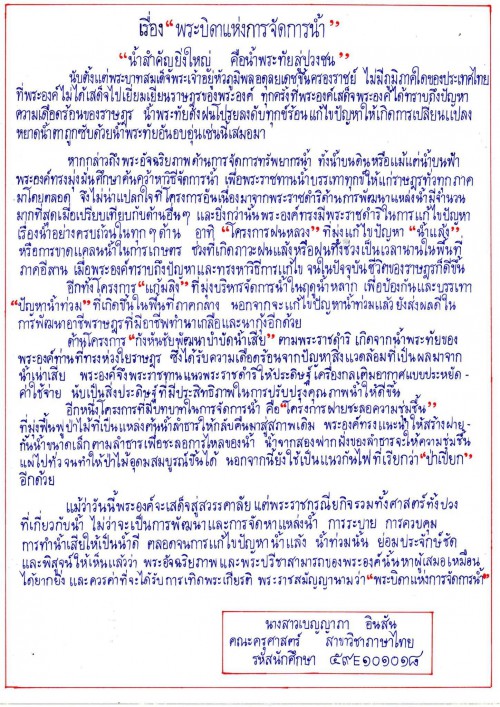 เรื่อง "พระบิดาแห่งการจัดการน้ำ"
"น้ำสำคัญยิ่งใหญ่ คือน้ำพระทัยสู่ปวงชน"
นับตั้งแต่พระบาทสมเด็จพระเจ้าอยู่หัวภูมิพลอดุลยเดชขึ้นครองราชย์ ไม่มีภูมิภาคใดของประเทศไทย
ที่พระองค์ไม่ได้เสด็จไปเยี่ยมเยียนราษฎรของพระองค์ ทุกครั้งที่พระองค์เสด็จพระองค์ได้ทราบถึงปัญหา
ความเดือดร้อนของราษฎร น้ำพระทัยดั่งฝนโปรยลงดับทุกข์ร้อน แก้ไขปัญหาให้เกิดการเปลี่ยนแปลง
หยาดน้ำตาถูกซับด้วยน้ำพระทัยอันอบอุ่นเช่นนี้เสมอมา
หากกล่าวถึงพระอัจฉริยภาพด้านการจัดการทรัพยากรน้ำ ทั้งน้ำบนดินหรือแม้แต่น้ำบนฟ้า
พระองค์ทรงมุ่งมั่นศึกษาค้นคว้าหาวิธีจัดการน้ำ เพื่อพระราชทานน้ำบรรเทาทุกข์ให้แก่ราษฎรทั่วทุกภาค
มาโดยตลอด จึงไม่น่าแปลกใจที่โครงการอันเนื่องมาจากพระราชดำริด้านการพัฒนาแหล่งน้ำมีจำนวน
มากที่สุดเมื่อเปรียบเทียบกับด้านอื่นๆ และยิ่งกว่านั้นพระองค์ทรงมีพระราชดำริในการแก้ไขปัญหา
เรื่องน้ำอย่างครบถ้วนในทุกๆด้าน อาทิ "โครงการฝนหลวง" ที่มุ่งแก้ไขปัญหา "น้ำแล้ง"
หรือการขาดแคลนน้ำในการเกษตร ช่วงที่เกิดภาวะฝนแล้งหรือฝนทิ้งช่วงเป็นเวลานานในพื้นที่
ภาคอีสาน เมื่อพระองค์ทราบถึงปัญหาและทรงหาวิธีการแก้ไข จนในปัจจุบันชีวิตของราษฎรก็ดีขึ้น
อีกทั้งโครงการ "แก้มลิง" ที่มุ่งบริหารจัดการน้ำในฤดูน้ำหลาก เพื่อป้องกันและบรรเทา
"ปัญหาน้ำท่วม" ที่เกิดขึ้นในพื้นที่ภาคกลาง นอกจากจะแก้ไขปัญหาน้ำท่วมแล้ว ยังส่งผลดีใน
การพัฒนาอาชีพราษฎรที่มีอาชีพทำนาเกลือและนากุ้งอีกด้วย
ด้านโครงการ "กังหันชัยพัฒนาบำบัดน้ำเสีย" ตามพระราชดำริ เกิดจากน้ำพระทัยของ
พระองค์ท่านที่ทรงห่วงใยราษฎร ซึ่งได้รับความเดือดร้อนจากปัญหาสิ่งแวดล้อมที่เป็นผลมาจาก
น้ำเน่าเสีย พระองค์จึงพระราชทานแนวพระราชดำริให้ประดิษฐ์เครื่องกลเติมอากาศแบบประหยัด-
ค่าใช้จ่าย นับเป็นสิ่งประดิษฐ์ที่มีประสิทธิภาพในการปรับปรุงคุณภาพน้ำให้ดีขึ้น
อีกหนึ่งโครงการที่มีบทบาทในการจัดการน้ำ คือ "โครงการฝายชะลอความชุ่มชื้น"
ที่มุ่งฟื้นฟูป่าไม้ที่เป็นแหล่งต้นน้ำลำธารให้กลับคืนมาสู่สภาพเดิม พระองค์ทรงแนะนำให้สร้างฝาย-
กั้นน้ำขนาดเล็กตามลำธารเพื่อชะลอการไหลของน้ำ น้ำจากสองฝากฝั่งของลำธารจะให้ความชุ่มชื้น
แผ่ไปทั่วจนทำให้ป่าไม้อุดมสมบูรณ์ขึ้นได้ นอกจากนี้ยังใช้เป็นแนวกันไฟที่เรียกว่า "ป่าเปียก"
อีกด้วย
แม้ว่าวันนี้พระองค์จะเสด็จสู่สวรรคาลัย แต่พระราชกรณียกิจรวมทั้งศาสตร์ทั้งปวง
ที่เกี่ยวกับน้ำ ไม่ว่าจะเป็นการพัฒนาและการจัดหาแหล่งน้ำ การระบาย การควบคุม
การทำน้ำเสียให้เป็นน้ำดี ตลอดจนการแก้ไขปัญหาน้ำแล้ง น้ำท่วมนั้น ย่อมประจักษ์ชัด
และพิสูจน์ให้เห็นแล้วว่า พระอัจฉริยภาพ และพระปรีชาสามารถของพระองค์นั้นหาผู้เสมอเหมือน
ได้ยากยิ่ง และควรค่าที่จะได้รับการเทิดพระเกียรติ พระราชสมัญญานามว่า "พระบิดาแห่งการจัดการน้ำ"
นางสาวเบญญาภา อินสัน
คณะครุศาสตร์ สาขาวิชาภาษาไทย
รหัสนักศึกษา ๕๙E๑๐๑๐๑๘